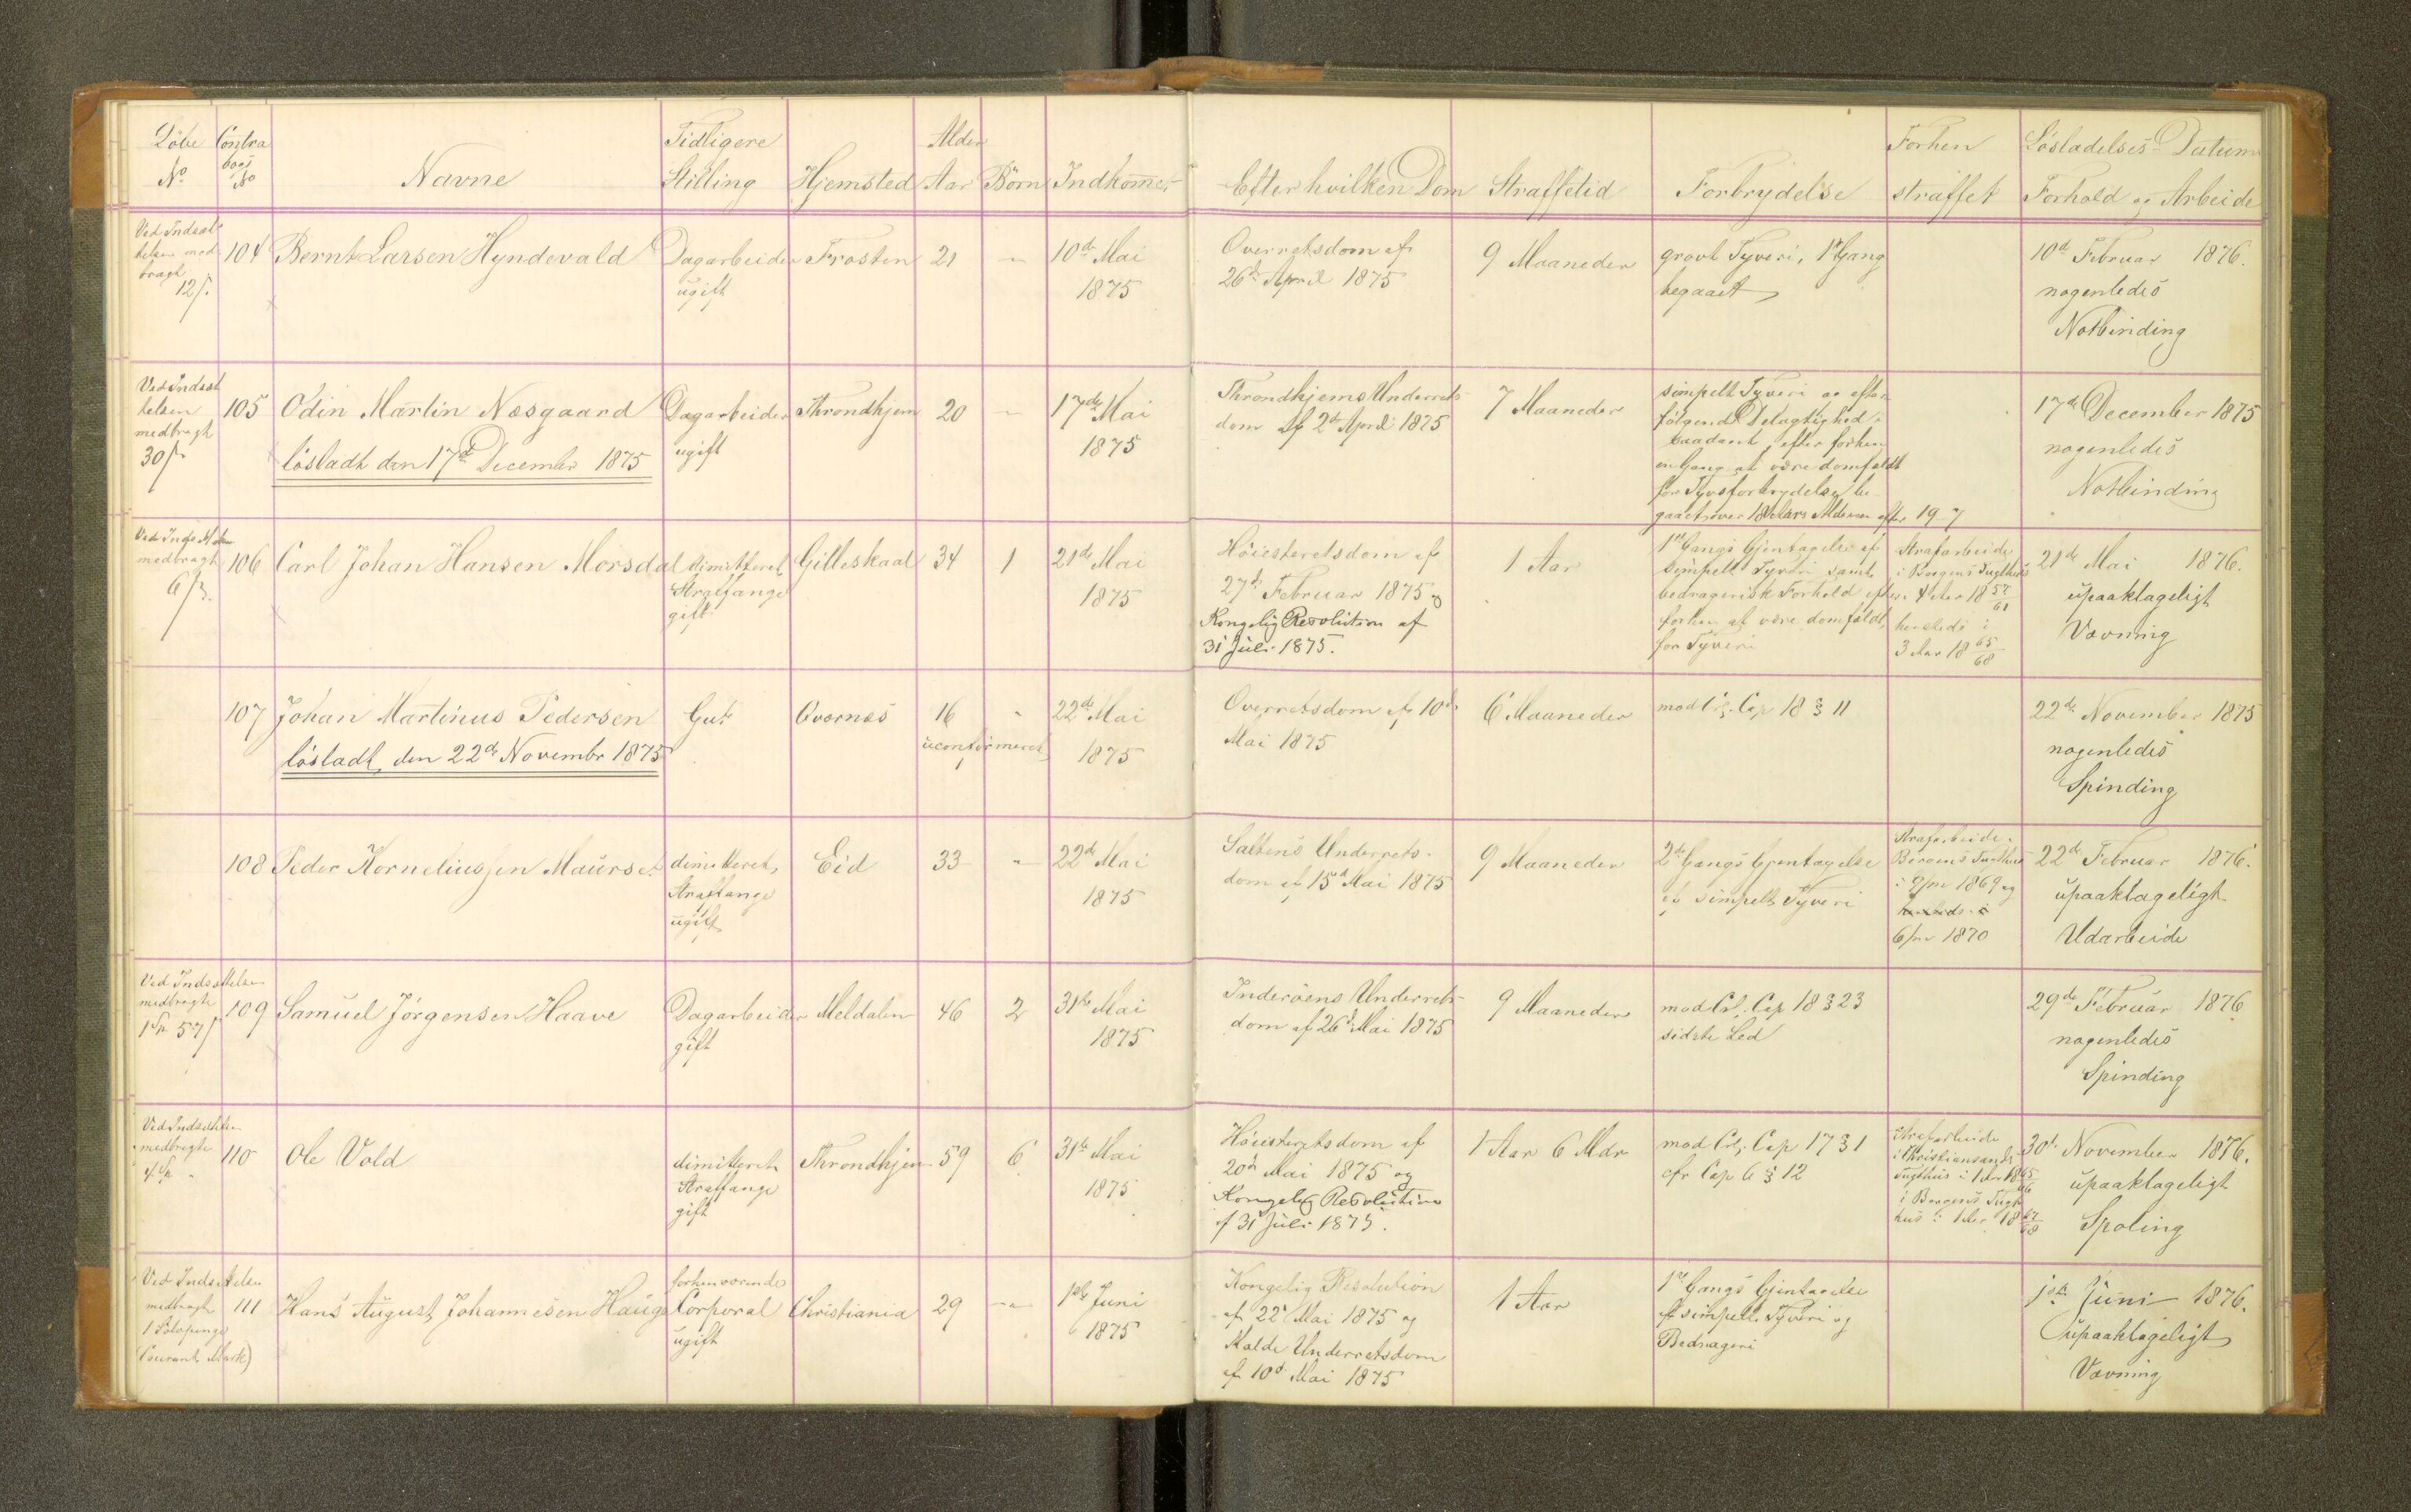 Löbe No
Contra bogs No
Navne
Tidligere Stilling
Hjemsted
Alder Aar
Börn
Indkomen
Efter hvilken Dom
Straffetid
Forbrydelse
Forhen straffet
Løsladelses Datum
Forhold og Arbeide
Ved Indsæt-
telsen med
bragt
12 s.
104
Bernt Larsen Hyndevald
Dagarbeider
ugift
Frosten
21
"
10de Mai
1875
Overretsdom af
26de April 1875
9 Maaneder
grovt Tyveri, 1ste Gang
begaaet
10de Februar 1876.
nogenledes
Notbinding
Ved Indsæt
telsen
medbragt
30 s
105
Odin Martin Næsgaard
løsladt den 17de December 1875
Dagarbeider
ugift
Throndhjem
20
"
17de Mai
1875
Throndhjems Underrets-
dom af 2de April 1875
7 Maaneder
simpelt Tyveri og efter-
følgende Delagtighed i
saadant, efter forhen
en Gang at være domfældt
for Tyvsforbrydelse be-
gaaet over 18 Aars Alderen efter 19-7
17de December 1875
nogenledes
Notbinding
medbragt
106
Carl Johan Hansen Morsdal
dimitteret
Straffange
gift
Gilleskaal
34
1
21de Mai
1875
Høiesteretsdom af
27de Februar 1875 og
Kongelig Resolution af
31 Juli 1875.
1 Aar
1ste Gangs Gjentagelse af
simpelt Tyveri samt
bedragerisk Forhold efter
forhen at være domfældt
for Tyveri
Strafarbeide
i Bergens Tugthus
i 4 Aar 18 57/61
ligeledes i
3 Aar 18 65/68
21de Mai 1876.
upaaklageligt
Vævning
107
Johan Martinus Pedersen
løsladt den 22de Novembr 1875
Gut
Qværnæs
16
uconfirmeret
"
22de Mai
1875
Overretsdom af 10de
Mai 1875
6 Maaneder
mod Crl. Cap 18 § 11
22de November 1875
nogenledes
Spinding
108
Peder Korneliussen Maurset
dimitteret
Straffange
ugift
Eid
33
"
22de Mai
1875
Saltens Underrets-
dom af 15de Mai 1875
9 Maaneder
2den Gangs Gjentagelse
af simpelt Tyveri
Strafarbeide i
Bergens Tugthus
1869 og
1870
22de Februar 1876.
upaaklageligt
Udarbeide
Ved Indsættelsen
medbragte
1 Sp 57 s
109
Samuel Jørgensen Haave
Dagarbeider
gift
Meldalen
46
2
31te Mai
1875
Inderøens Underrets-
dom af 26de Mai 1875
9 Maaneder
mod Crl. Cap 18 § 23
sidste Led
29de Februar 1876
nogenledes
Spinding
Ved Indsættelsen
medbragte
4 Sp "
110
Ole Vold
dimitteret
Straffange
gift
Throndhjem
59
6
31te Mai
1875
Høiesteretsdom af
20de Mai 1875 og
Kongelig Resolution
af 31 Juli 1875.
1 Aar 6 Mdr
mod Crl. Cap 17 § 1
cfr Cap 6 § 12
Strafarbeide
i Christiansands
Tugthus i 1 Aar 18 65/66
i Bergens Tugt-
hus i 1 Aar 18 67/68
30te November 1876.
upaaklageligt
Spoling
Ved Indsættelsen
medbragt
1 Sølvpenge
(Courant Mark)
111
Hans August Johannesen Hauge
forhenværende
Corporal
ugift
Christiania
29
"
1ste Juni
1875
Kongelig Resolution
af 22de Mai 1875 og
Underretsdom
af 10de Mai 1875
1 Aar
1ste Gangs Gjentagelse
af simpelt Tyveri og
Bedrageri
1ste Juni 1876.
upaaklageligt
Vævning